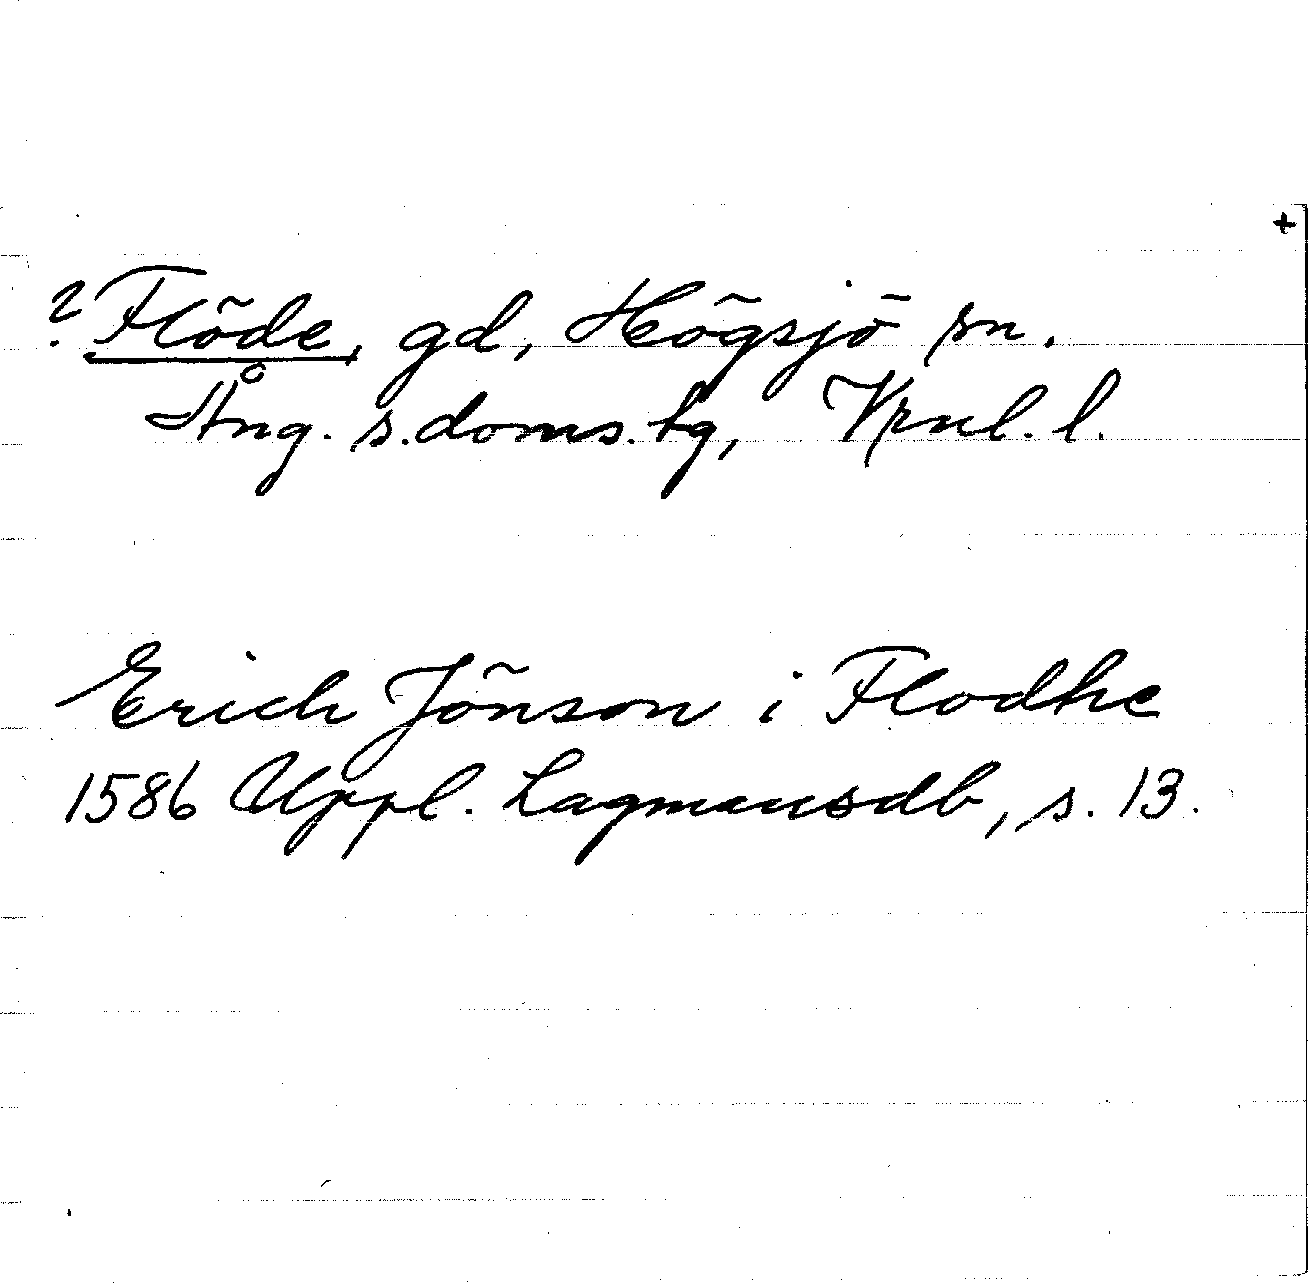 +
? Flöde, gd, Högsjö sn.
Ång. s. doms. tg, Vrnl. l.
Erich Jönson i Flodhe
1586 Uppl. Lagmansdb, s. 13.